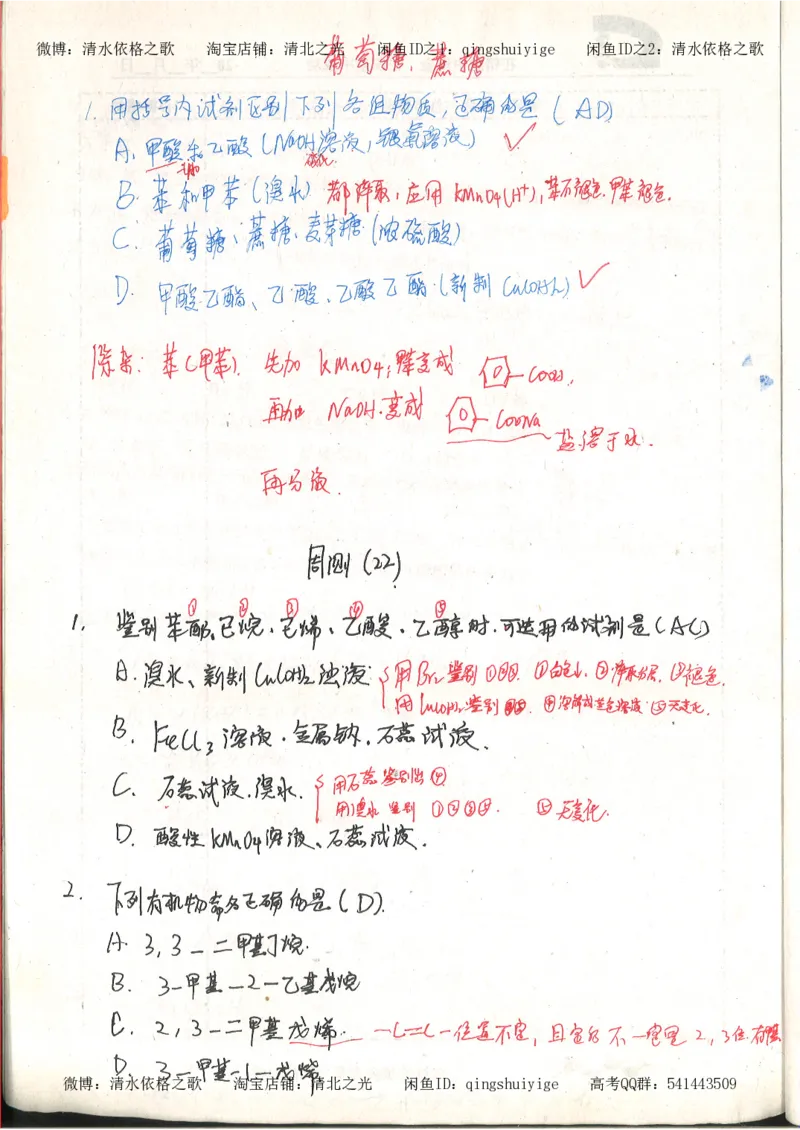 微博：清水依格之歌 淘宝店铺：清北之光 闲鱼ID之1：qingshuiyige 闲鱼ID之2：清水依格之歌
葡萄糖、蔗糖
1. 用括号内试剂区别下列各组物质，正确的是（AD）
A. 甲酸和乙酸（NaOH溶液，银氨溶液）✓
B. 苯和甲苯（溴水） 都萃取，应用 KMnO4(H+)，苯不褪色，甲苯褪色.
C. 葡萄糖、蔗糖、麦芽糖（浓硫酸）
D. 甲酸乙酯、乙酸、乙酸乙酯（新制 Cu(OH)2）✓
除杂：苯（甲苯）. 先加 KMnO4，甲苯变成 -COOH，
再加 NaOH 变成 -COONa
盐溶于水.
再分液.
周测（22）
1. 鉴别苯酚、己烷、己烯、乙酸、乙醇时，可选用的试剂是（AC）
① ② ③ ④ ⑤
A. 溴水、新制 Cu(OH)2 浊液 用Br2 鉴别 ①②③. ①白色↓，②萃取分层，③褪色.
用 Cu(OH)2 鉴别 ④溶解成蓝色溶液 ⑤无变化.
B. FeCl3 溶液、金属钠、石蕊试液.
C. 石蕊试液、溴水. 用石蕊鉴别出④
用溴水鉴别 ①②③. ⑤无变化.
D. 酸性 KMnO4 溶液、石蕊试液.
2. 下列有机物命名正确的是（D）.
A. 3,3-二甲基丁烷.
B. 3-甲基-2-乙基戊烷
C. 2,3-二甲基戊烯. -C=C-位置不定，且定的不一定是 2,3位
D. 3-甲基-1-戊烯
微博：清水依格之歌 淘宝店铺：清北之光 闲鱼ID：qingshuiyige 高考QQ群：541443509